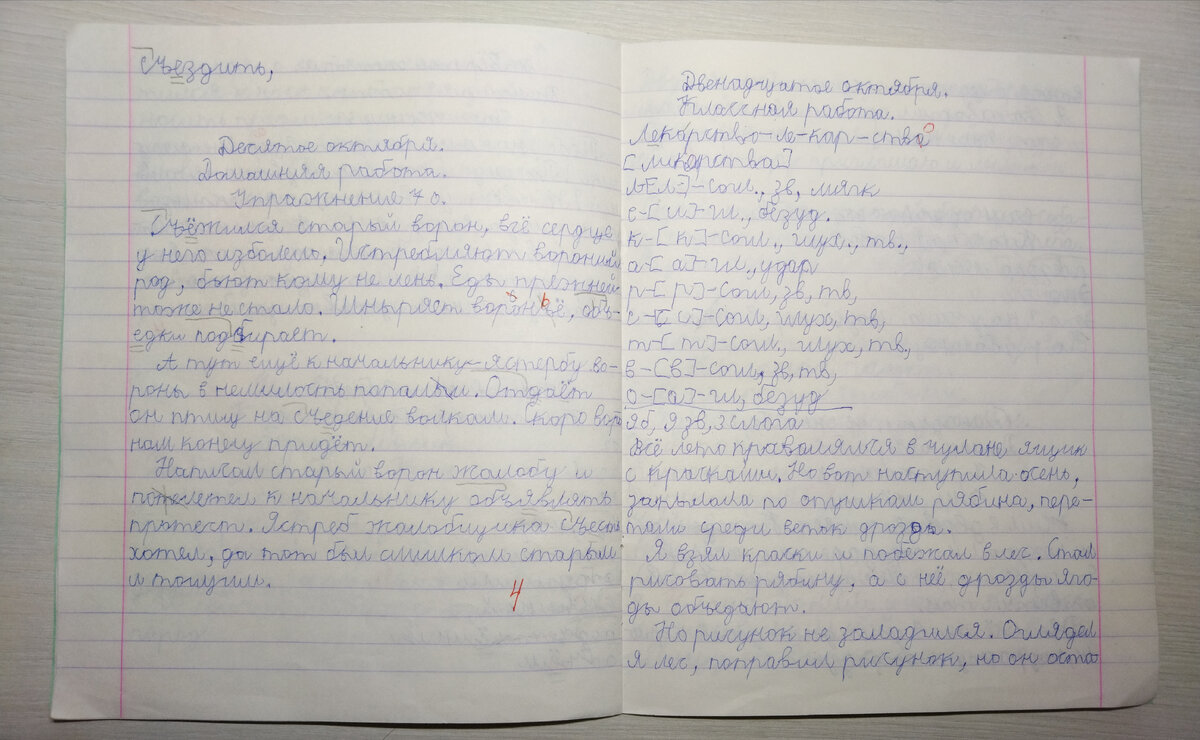 Съездить,
Десятое октября.
Домашняя работа.
Упражнение 70.
Съёжился старый ворон, всё сердце
у него изболелось. Истребляют вороний
род, бьют кому не лень. Еды прежней
тоже не стало. Шныряет вороньё, объ-
едки подбирает.
А тут ещё к начальнику-ястребу во-
роны в немилость попали. Отдаёт
он птиц на съедение волкам. Скоро воро-
нам конец придёт.
Написал старый ворон жалобу и
полетел к начальнику объявлять
протест. Ястреб жалобщика съесть
хотел, да тот был слишком старым
и тощим.
4
Двенадцатое октября.
Классная работа.
Лекарство-ле-кар-ство
[ликарства]
л-[л']-согл., зв, мягк
е-[и]-гл., безуд.
к-[к]-согл., глух., тв.,
а-[а]-гл., удар
р-[р]-согл, зв, тв,
с-[с]-согл, глух, тв,
т-[т]-согл., глух, тв.,
в-[в]-согл, зв, тв,
о-[а]-гл, безуд
9б, 9 зв, 3 слога
Всё лето провалялся в чулане ящик
с красками. Но вот наступила осень,
запылала по опушкам рябина, пере-
тали среди веток дрозды.
Я взял краски и побежал в лес. Стал
рисовать рябину, а с неё дрозды яго-
ды объедают.
Но рисунок не заладился. Оглядел
я лес, поправил рисунок, но он оста